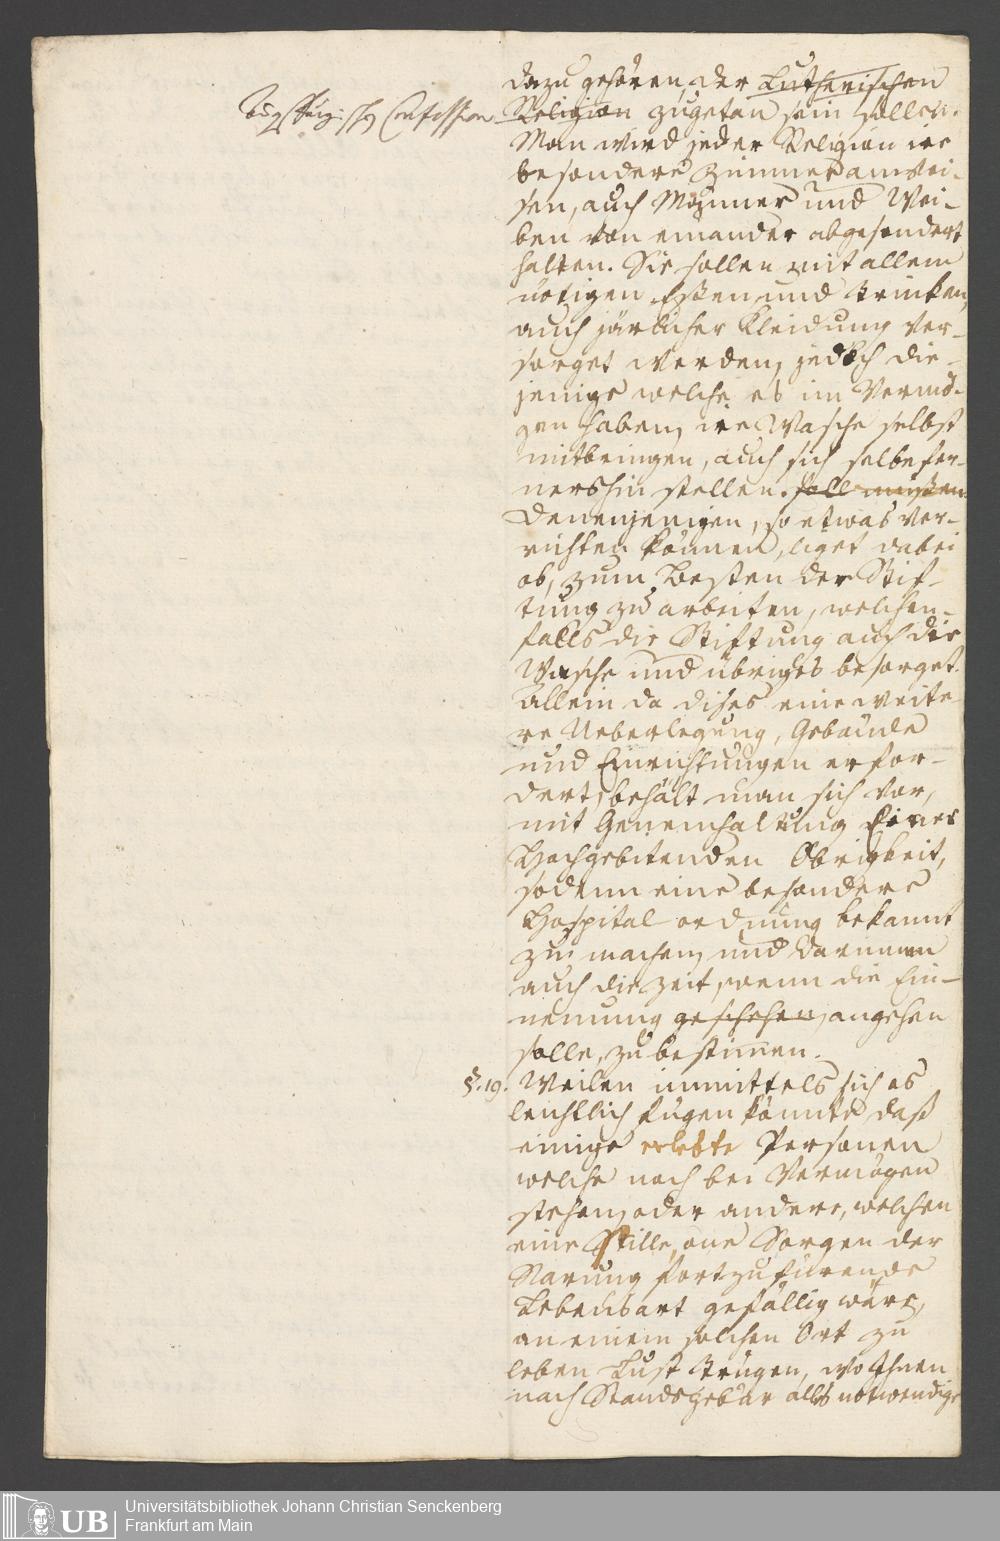 Augspurgischen Confession
dazu gehören, der Lutherischen
Religion zugetan sein sollen.
Man wird jeder Religion ire
besondere Zimmer anwei-
sen, auch Männer und Wei-
ber von einander abgesondert
halten. Sie sollen mit allem
nötigen Essen und Trinken,
auch järlicher Kleidung ver-
sorget werden, jedoch die-
jenige welche es im Vermö-
gen haben, ire Wäsche selbst
mitbringen, auch sich selbe fer-
nershin stellen. soll müssen
Denenjenigen, so etwas ver-
richten können, liget dabei
ob, zum Besten der Stif-
tung zu arbeiten, welchen-
falls die Stiftung auch die
Wäsche und übriges besorget.
Allein da dises eine weite-
re Ueberlegung, Gebäude
und Einrichtungen erfor-
dert, behält man sich vor,
mit Genemhaltung Einer
Hochgebitenden Obrigkeit,
sodenn eine besondere
Hospital ordnung bekannt
zu machen, und darinnen
auch die Zeit, wenn die Ein-
nemung geschehen, angehen
solle, zu bestimen.
§. 19. Weilen inmittels sich es
leichtlich fügen könnte, daß
einige erlebte Personen
welche noch bei Vermögen
stehen, oder andere, welchen
eine Stille, one Sorgen der
Narung fortzufürende
Lebensart gefällig wäre,
an einem solchen Ort zu
leben Lust trügen, wo Ihnen
nach Standsgebür alles notwendige
Universitätsbibliothek Johann Christian Senckenberg
UB Frankfurt am Main